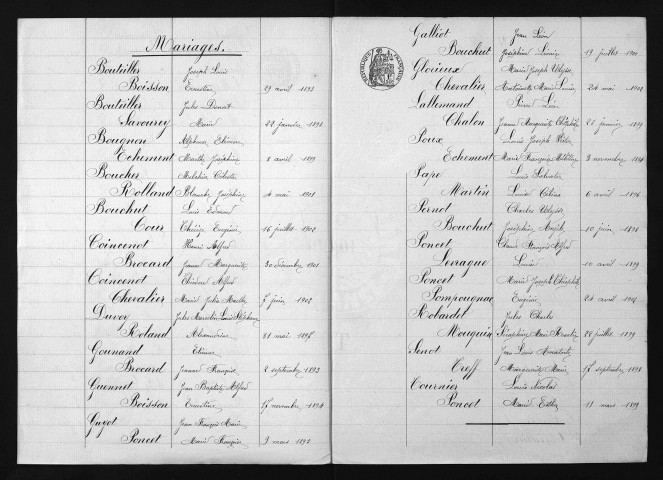 Mariages.
Boutailler Joseph Louis
Boisson Ernestine 29 avril 1893
Boutailler Jules Donat
Savourey Marie 22 janvier 1898
Bougnon Alphonse Etienne
Echement Marthe Joséphine 8 avril 1899
Boucher Célestin
Rolland Blanche Joséphine 4 mai 1901
Bouchut Louis Edmond
Cour Eugénie 16 juillet 1902
Coincenot Henri Alfred
Brocard Jeanne Marguerite 30 décembre 1901
Coincenot Théodore Alfred
Chevalier Marie Julie Marthe 7 juin 1902
Duvoy Jules Marcelin Louis Stéphane
Roland Alexandrine 31 mai 1897
Gounand Etienne
Brocard Jeanne Françoise 2 septembre 1893
Guennet Jean Baptiste Alfred
Boisson Ernestine 17 novembre 1894
Guyot Jean François Marie
Poncet Marie Françoise 3 mars 1892
Galliot Jean Léon
Bouchut Joséphine 13 juillet 1901
Glorieux Marie Joseph Ulysse
Chevalier Antoinette Marie Louise 24 mai 1902
Lallemand Pierre Léon
Chalon Jeanne Marguerite 28 janvier 1899
Poux Louis Joseph
Echement Marie Françoise 3 novembre 1894
Pape Louis
Martin Louise 6 avril 1896
Pernot Charles Ulysse
Bouchut Joséphine 10 juin 1898
Poncet Claude François Alfred
Levraque Louise 10 avril 1899
Poncet Marie Joseph Théophile
Pompougnac Eugénie 24 avril
Robardet Jules Charles
Mouquin Séraphine Marie 28 juillet 1899
Senot Jean Louis
Treff Marguerite Marie 17 septembre 1898
Tournier Louis Nicolas
Poncet Marie Esther 11 mars 1899